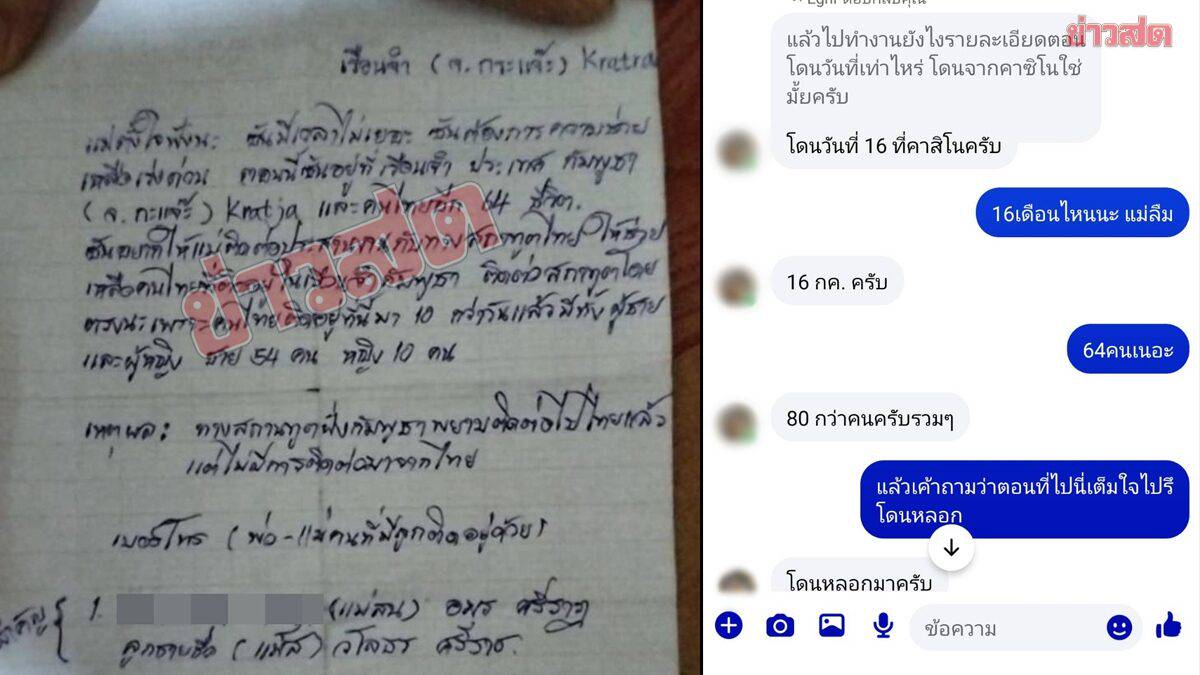 เรือนจำ (จ. กะแจ๊ะ) Kratra
แม่ตั้งใจฟังนะ ฉันมีเวลาไม่เยอะ ฉันต้องการความช่วย
เหลือเร่งด่วน ตอนนี้ฉันอยู่ที่เรือนจำ ประเทศ กัมพูชา
(จ. กะแจ๊ะ) Kratja และคนไทยอีก 64 ชีวิต.
ฉันอยากให้แม่ติดต่อประสานงานกับทางสถานทูตไทย ให้ช่วย
เหลือคนไทยที่ติดอยู่ในเรือนจำกัมพูชา ติดต่อสถานทูตโดย
ตรงนะเพราะคนไทยติดอยู่ที่นี่มา 10 กว่าวันแล้วมีทั้ง ผู้ชาย
และผู้หญิง ชาย 54 คน หญิง 10 คน
เหตุผล: ทางสถานทูตฝั่งกัมพูชาพยามติดต่อไปไทยแล้ว
แต่ไม่มีการติดต่อมาจากไทย
เบอร์โทร (พ่อ-แม่คนที่มีลูกติดอยู่ด้วย)
1. (แม่สน) อมร ศรีราช
ลูกชายชื่อ (แม็ส) วโลธร ศรีราช.
ข่าวสด
ข่าวสด
แล้วไปทำงานยังไงรายละเอียดตอน
โดนวันที่เท่าไหร่ โดนจากคาซิโนใช่
มั้ยครับ
โดนวันที่ 16 ที่คาสิโนครับ
16เดือนไหนนะ แม่ลืม
16 กค. ครับ
64คนเนอะ
80 กว่าคนครับรวมๆ
แล้วเค้าถามว่าตอนที่ไปนี่เต็มใจไปรึ
โดนหลอก
โดนหลอกมาครับ
ข้อความ